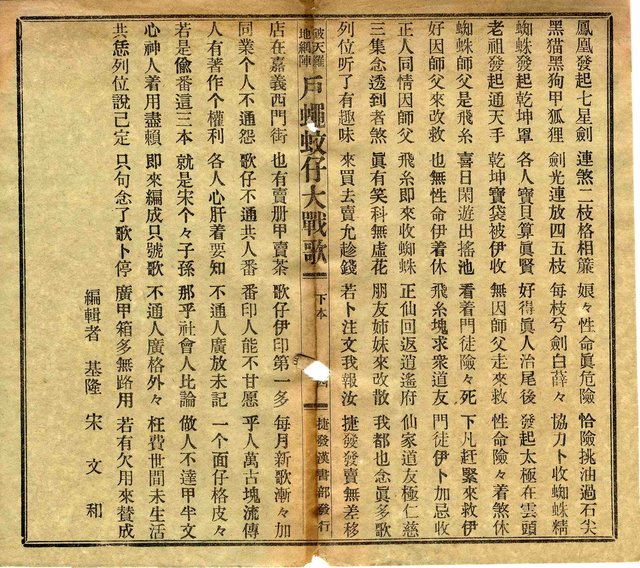 鳳凰發起七星劍 連煞二枝格相簾 娘々性命眞危險 恰險挑油過石尖
黑猫黑狗甲狐狸 劍光連放四五枝 每枝兮劍白薛々 協力卜收蜘蛛精
蜘蛛發起乾坤罩 各人寶貝算眞賢 好得眞人治尾後 發起太極在雲頭
老祖發起通天手 乾坤寶袋被伊收 無因師父走來救 性命險々着煞休
蜘蛛師父是飛糸 喜日閑遊出搖池 看着門徒險々死 下凡赶緊來救伊
好因師父來改救 也無性命伊着休 飛糸塊求衆道友 門徒伊卜加忌收
正人同情因師父 飛糸即來收蜘蛛 正仙回返逍遙府 仙家道友極仁慈
三集念透到者煞 眞有笑科無虛花 朋友姉妹來改散 我都也念眞多歌
列位听了有趣味 來買去賣允趁錢 若卜注文我報汝 捷發發賣無差移
破天羅地網陣 戶蠅蚊仔大戰歌 下本 捷發漢書部發行
店在嘉義西門街 也有賣册甲賣茶 歌仔伊印第一多 每月新歌漸々加
同業个人不通怨 歌仔不通共人番 番印人能不甘愿 乎人萬古塊流傳
人有著作个權利 各人心肝着要知 不通人廣放未記 一个面仔格皮々
若是偸番這三本 就是宋个々子孫 那乎社會人比論 做人不達甲半文
心神人着用盡賴 即來編成只號歌 不通人廣格外々 枉費世間未生活
共恁列位說己定 只句念了歌卜停 廣甲箱多無路用 若有欠用來贊成
編輯者 基隆 宋文和